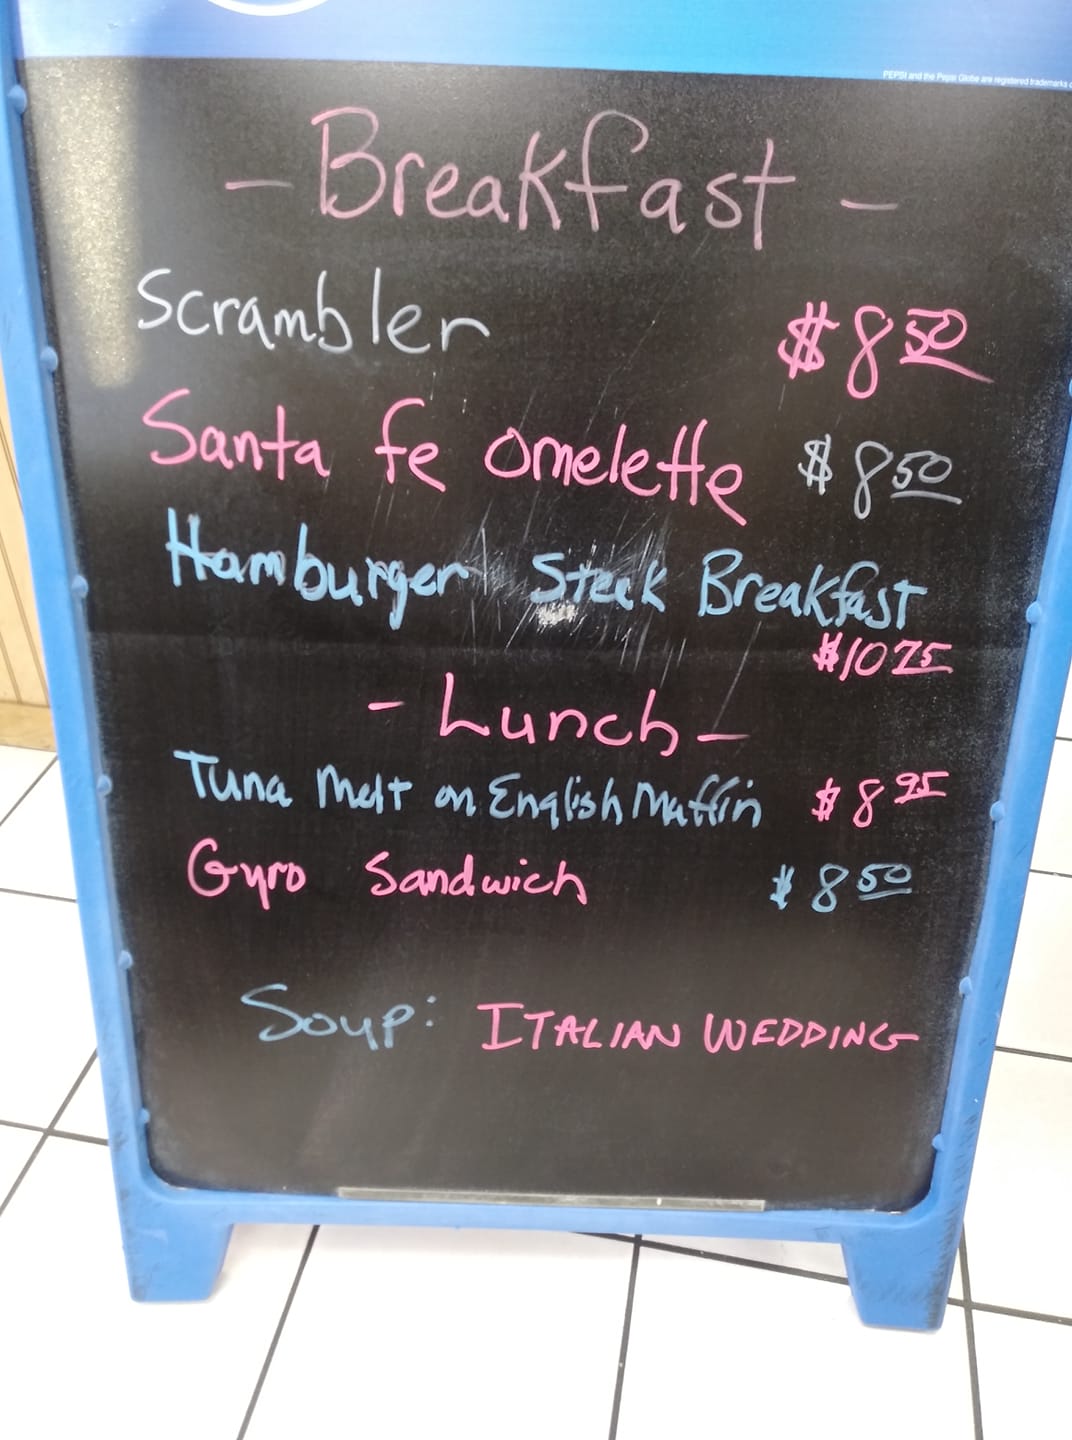 PEPSI and the Pepsi Globe are registered trademarks
- Breakfast -
Scrambler $8 50
Santa fe omelette $8 50
Hamburger Steak Breakfast
$10 75
- Lunch -
Tuna Melt on English Muffin $8 95
Gyro Sandwich $8 50
Soup: ITALIAN WEDDING